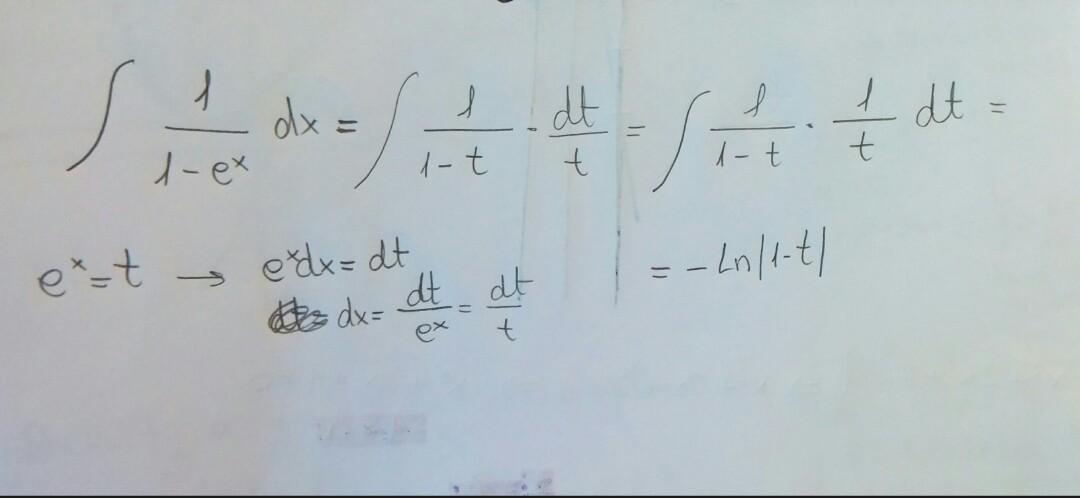 ∫ 1/(1-eˣ) dx = ∫ 1/(1-t) · dt/t = ∫ 1/(1-t) · 1/t dt =
eˣ=t → eˣdx = dt = -Ln|1-t|
dx = dt/eˣ = dt/t